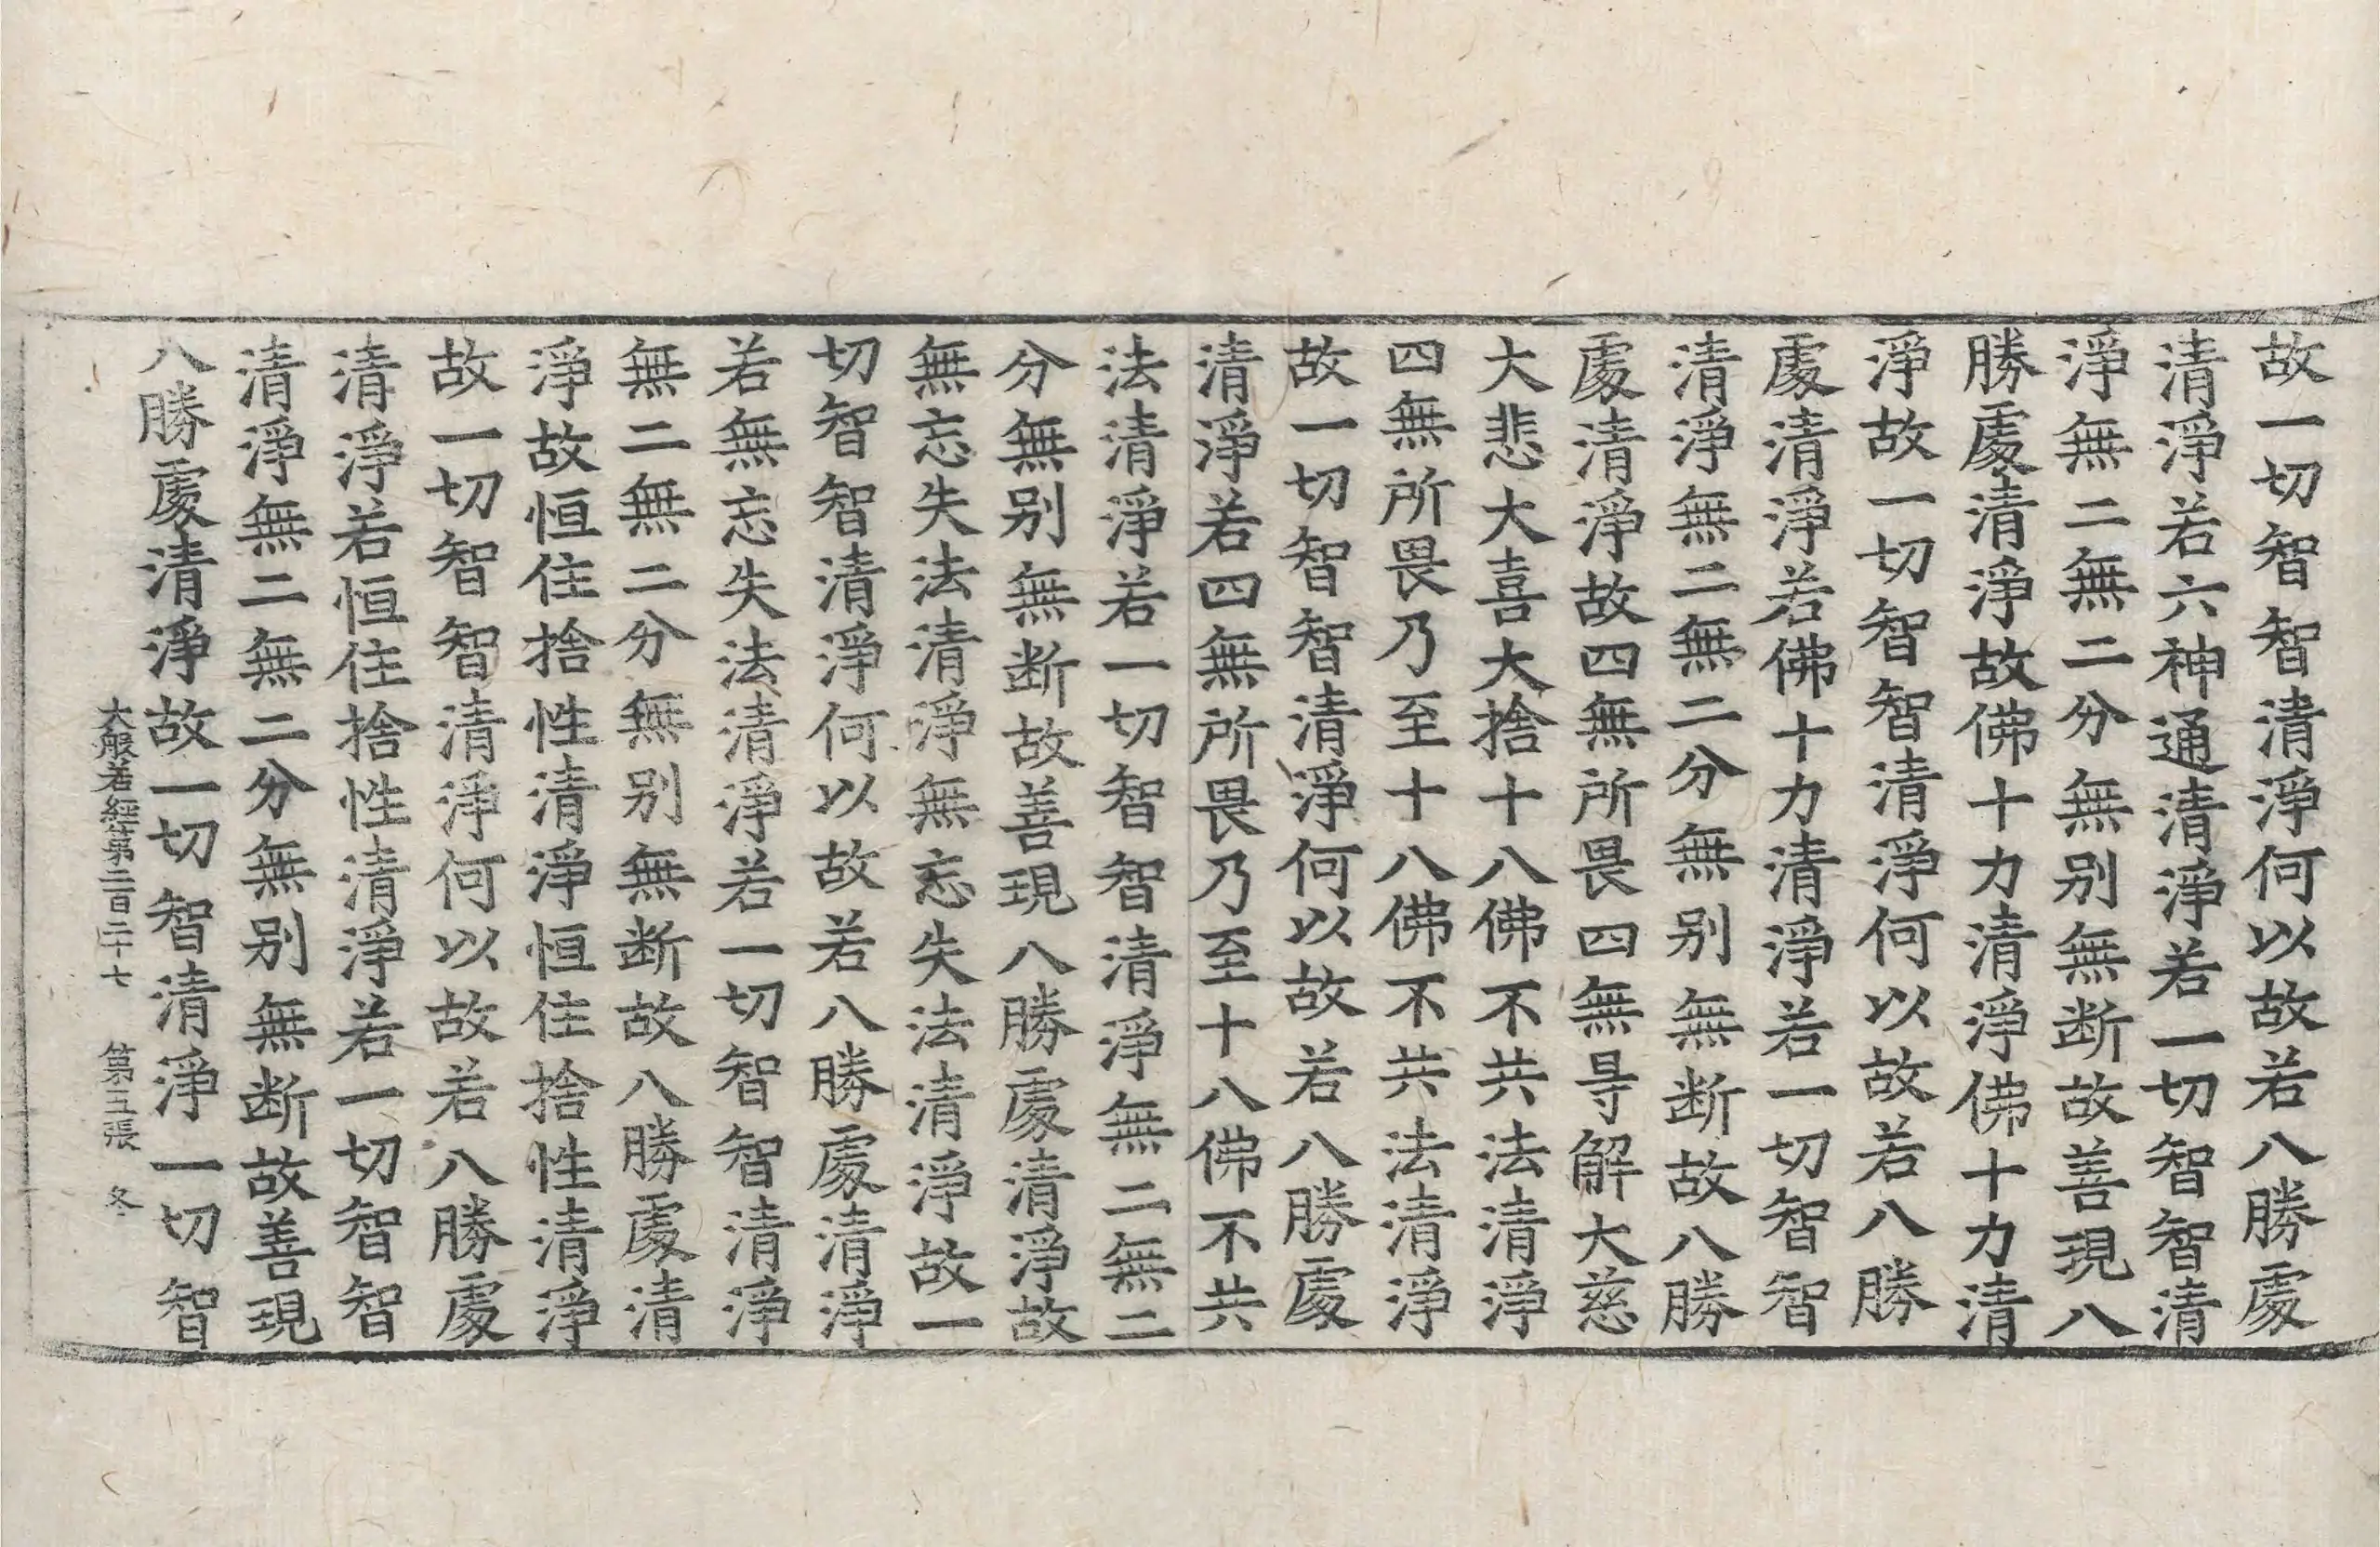 故一切智智清淨何以故若八勝處
清淨若六神通清淨若一切智智清
淨無二無二分無别無断故善現八
勝處清淨故佛十力清淨佛十力清
淨故一切智智清淨何以故若八勝
處清淨若佛十力清淨若一切智智
清淨無二無二分無别無断故八勝
處清淨故四無所畏四無㝵解大慈
大悲大喜大捨十八佛不共法清淨
四無所畏乃至十八佛不共法清淨
故一切智智清淨何以故若八勝處
清淨若四無所畏乃至十八佛不共
法清淨若一切智智清淨無二無二
分無别無断故善現八勝處清淨故
無忘失法清淨無忘失法清淨故一
切智智清淨何以故若八勝處清淨
若無忘失法清淨若一切智智清淨
無二無二分無别無断故八勝處清
淨故恒住捨性清淨恒住捨性清淨
故一切智智清淨何以故若八勝處
清淨若恒住捨性清淨若一切智智
清淨無二無二分無别無断故善現
八勝處清淨故一切智清淨一切智
大般若經第二百二十七 第張 冬